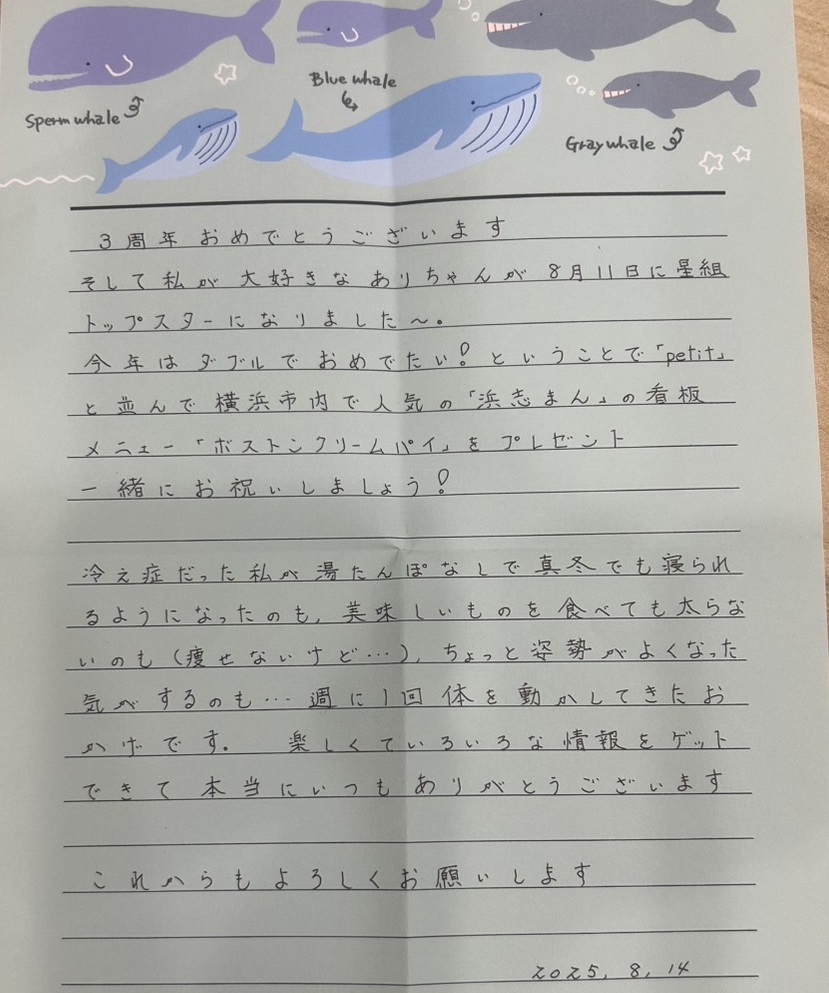 Sperm whale
Blue whale
Gray whale
3周年おめでとうございます
そして私が大好きなありちゃんが8月11日に星組
トップスターになりました〜。
今年はダブルでおめでたい!ということで「petit」
と並んで横浜市内で人気の「浜志まん」の看板
メニュー「ボストンクリームパイ」をプレゼント
一緒にお祝いしましょう!
冷え症だった私が湯たんぽなしで真冬でも寝られ
るようになったのも、美味しいものを食べても太らな
いのも(痩せないけど…)、ちょっと姿勢がよくなった
気がするのも…週に1回体を動かしてきたお
かげです。 楽しくていろいろな情報をゲット
できて本当にいつもありがとうございます
これからもよろしくお願いします
2025, 8, 14